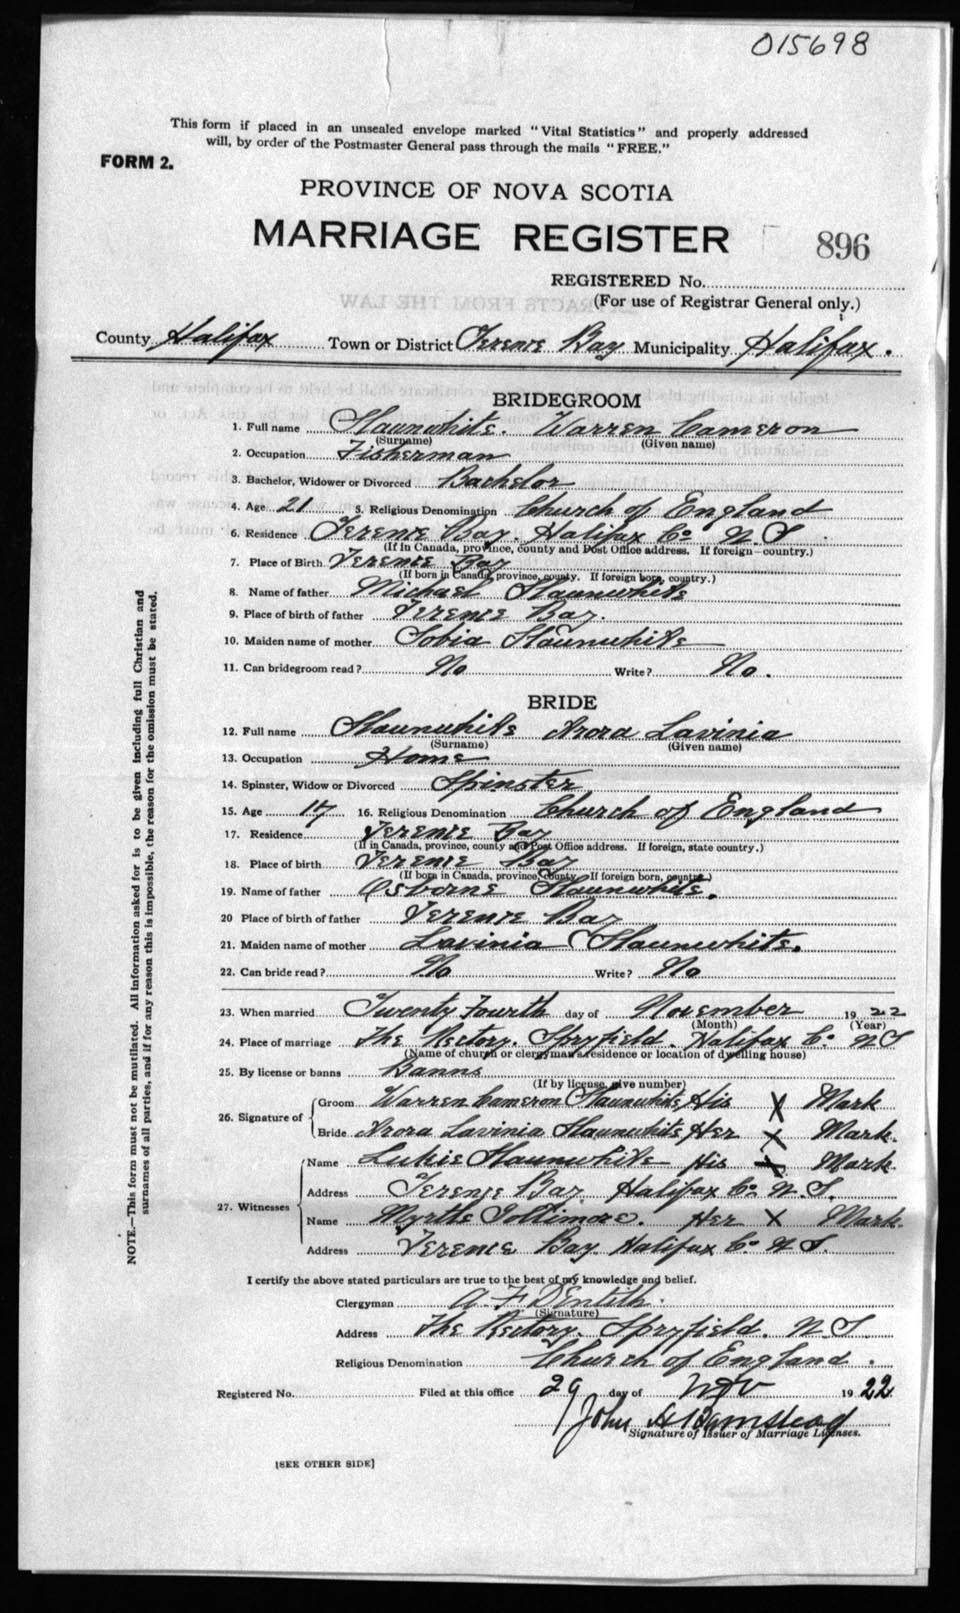 015698
This form if placed in an unsealed envelope marked "Vital Statistics" and properly addressed
will, by order of the Postmaster General pass through the mails "FREE."
FORM 2.
PROVINCE OF NOVA SCOTIA
MARRIAGE REGISTER 896
REGISTERED No.
(For use of Registrar General only.)
County Halifax Town or District Terence Bay Municipality Halifax.
BRIDEGROOM
1. Full name Slaunwhite. Warren Cameron
(Surname) (Given name)
2. Occupation Fisherman
3. Bachelor, Widower or Divorced Bachelor
4. Age 21 5. Religious Denomination Church of England
6. Residence Terence Bay. Halifax Co N.S.
(If in Canada, province, county and Post Office address. If foreign—country.)
7. Place of Birth Terence Bay
(If born in Canada, province, county. If foreign born, country.)
8. Name of father Michael Slaunwhite
9. Place of birth of father Terence Bay.
10. Maiden name of mother Sobia Slaunwhite
11. Can bridegroom read? No Write? No.
BRIDE
12. Full name Slaunwhite Arora Lavinia
(Surname) (Given name)
13. Occupation Home
14. Spinster, Widow or Divorced Spinster
15. Age 17 16. Religious Denomination Church of England
17. Residence Terence Bay
(If in Canada, province, county and Post Office address. If foreign, state country.)
18. Place of birth Terence Bay
(If born in Canada, province, county. If foreign born, country.)
19. Name of father Osborne Slaunwhite.
20 Place of birth of father Terence Bay
21. Maiden name of mother Lavinia Slaunwhite.
22. Can bride read? No Write? No
23. When married Twenty Fourth day of November 1922
(Month) (Year)
24. Place of marriage The Rectory. Spryfield. Halifax Co. N.S
(Name of church or clergyman's residence or location of dwelling house)
25. By license or banns Banns
(If by license, give number)
26. Signature of
Groom Warren Cameron Slaunwhite, His X Mark
Bride Arora Lavinia Slaunwhite, Her X Mark.
27. Witnesses
Name Lukie Slaunwhite His X Mark
Address Terence Bay. Halifax Co. N.S.
Name Myrtle Jollimore. Her X Mark.
Address Terence Bay. Halifax Co N S.
I certify the above stated particulars are true to the best of my knowledge and belief.
Clergyman A. F Dentith.
(Signature)
Address The Rectory. Spryfield. N.S.
Religious Denomination Church of England.
Registered No. Filed at this office 29 day of Nov 1922
John A Bamstead
Signature of Issuer of Marriage Licenses.
[SEE OTHER SIDE]
NOTE.—This form must not be mutilated. All information asked for is to be given including full Christian and
surnames of all parties, and if for any reason this is impossible, the reason for the omission must be stated.